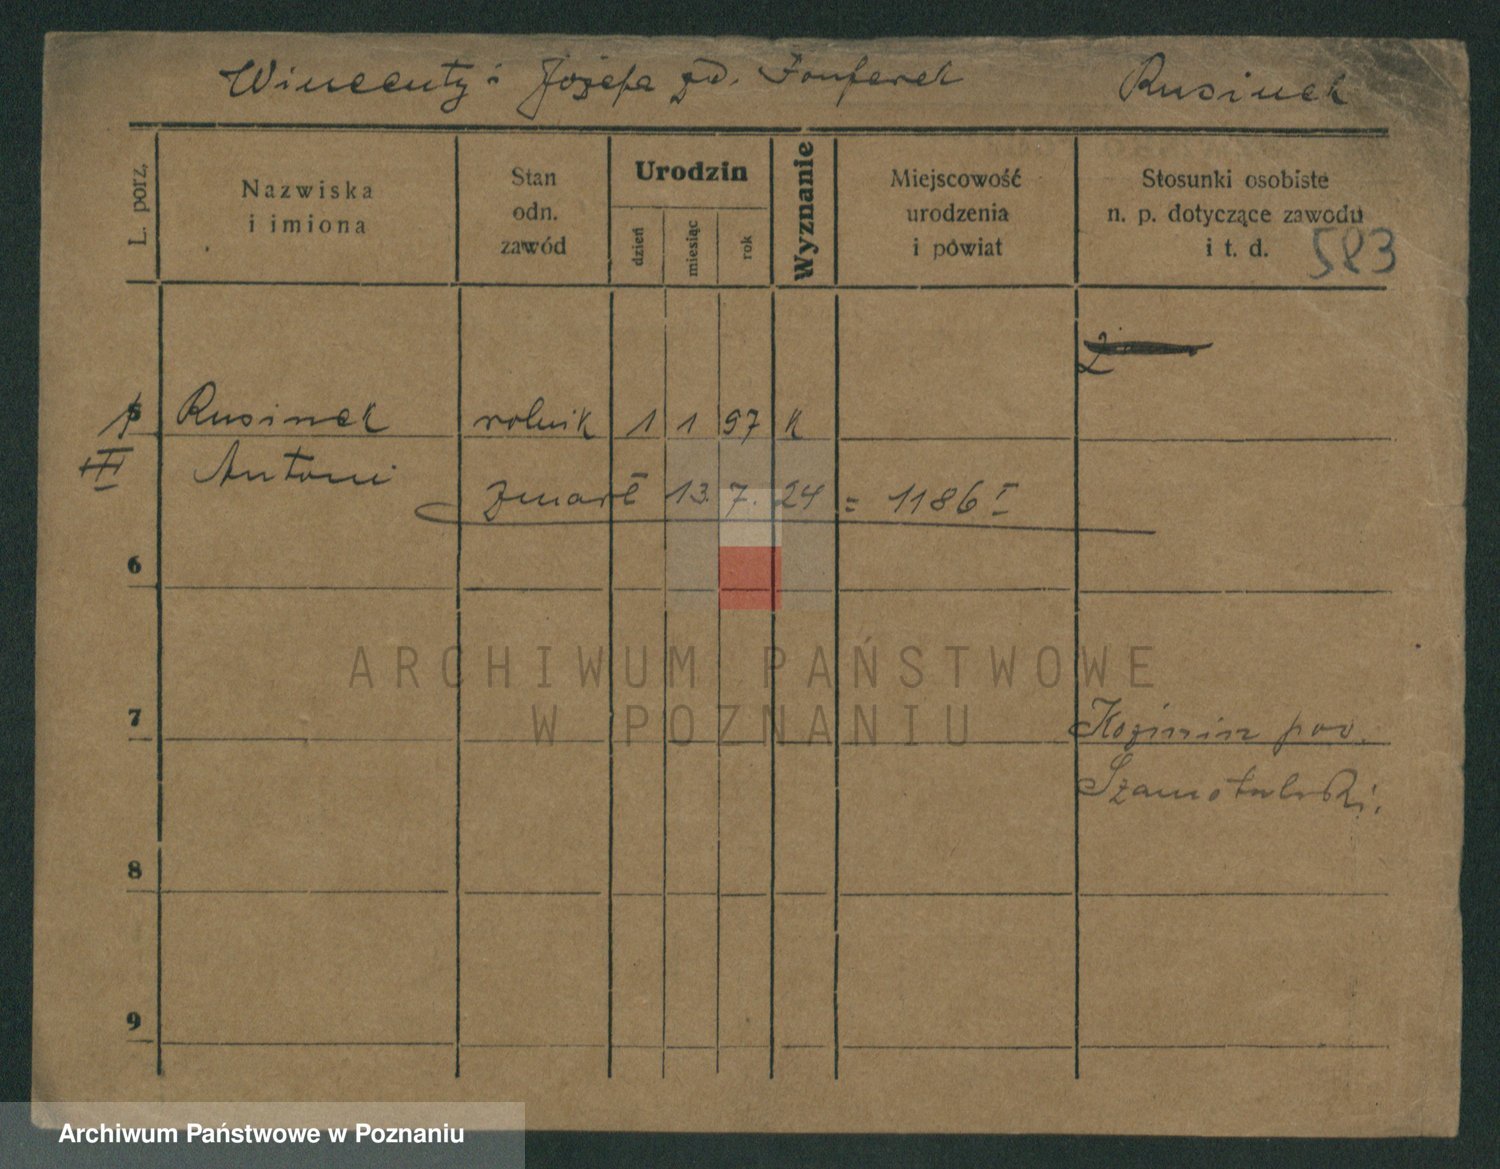 Wincenty i Józefa zd. Fonferek Rusinek
L. porz.
Nazwiska
i imiona
Stan
odn.
zawód
Urodzin
dzień
miesiąc
rok
Wyznanie
Miejscowość
urodzenia
i powiat
Stosunki osobiste
n. p. dotyczące zawodu
i t. d.
583
2
5 Rusinek rolnik 1 1 97 k
III Antoni
zmarł 13. 7. 24 = 1186 I
6
ARCHIWUM PAŃSTWOWE
W POZNANIU
7 Koźmin pow.
Szamotulski.
8
9
Archiwum Państwowe w Poznaniu